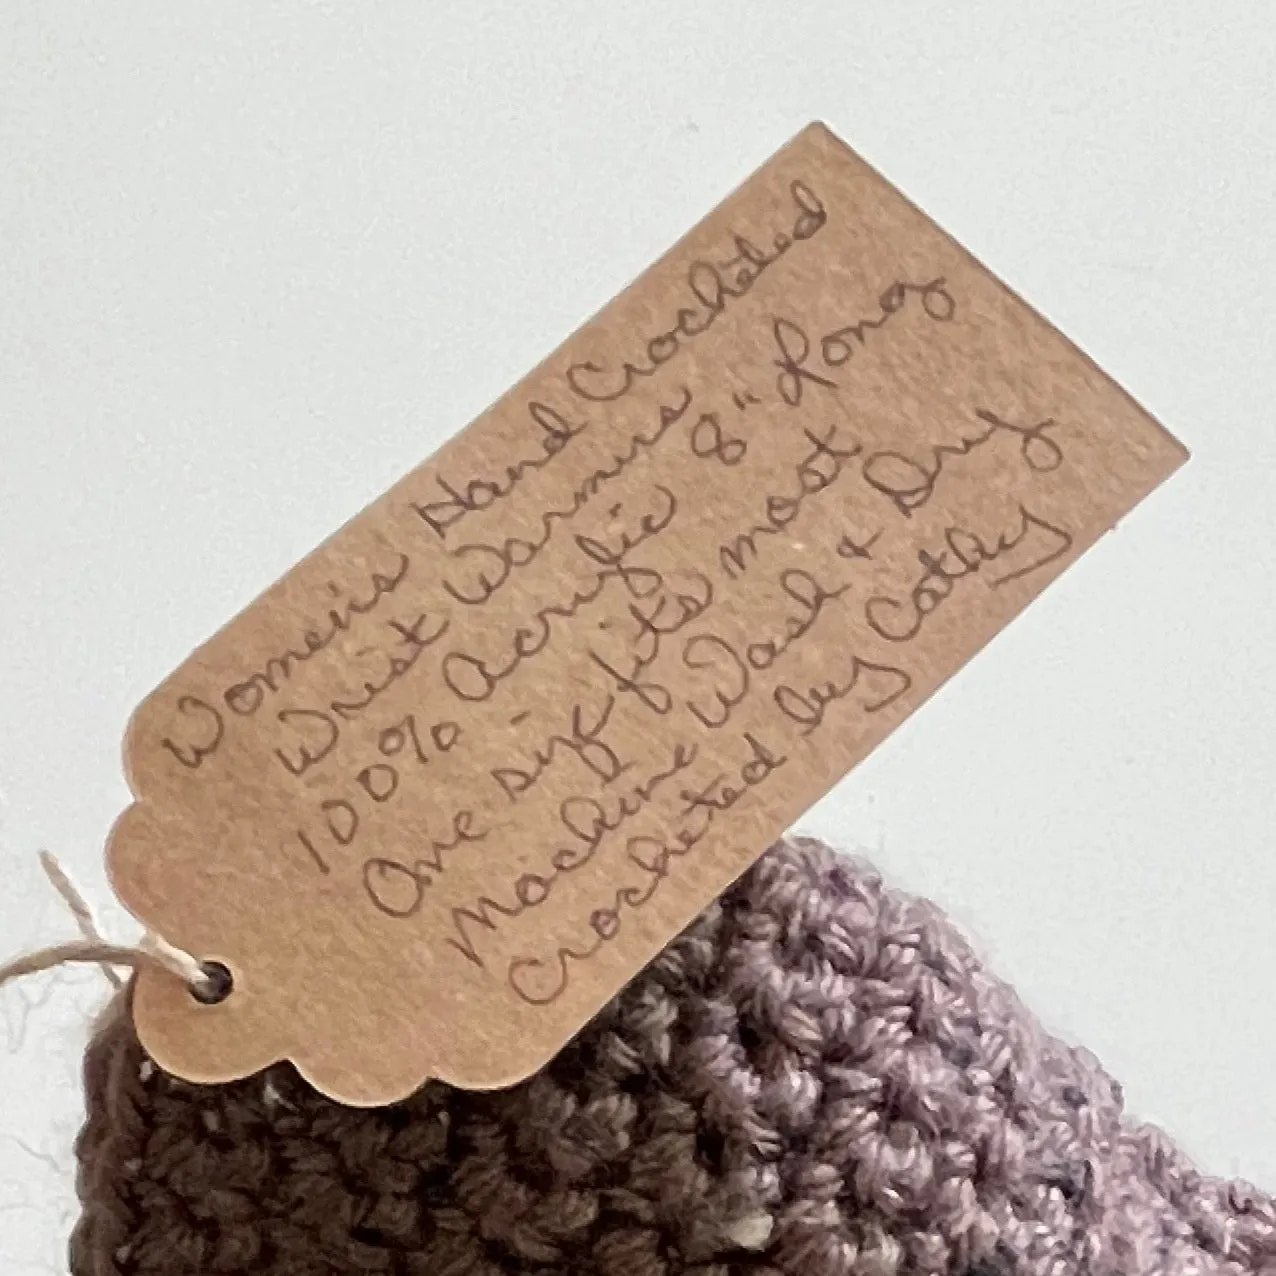 Women's Hand Crocheted
Wrist Warmers
100% Acrylic 8" Long
One size fits most
Machine Wash & Dry
Crocheted by Cathy